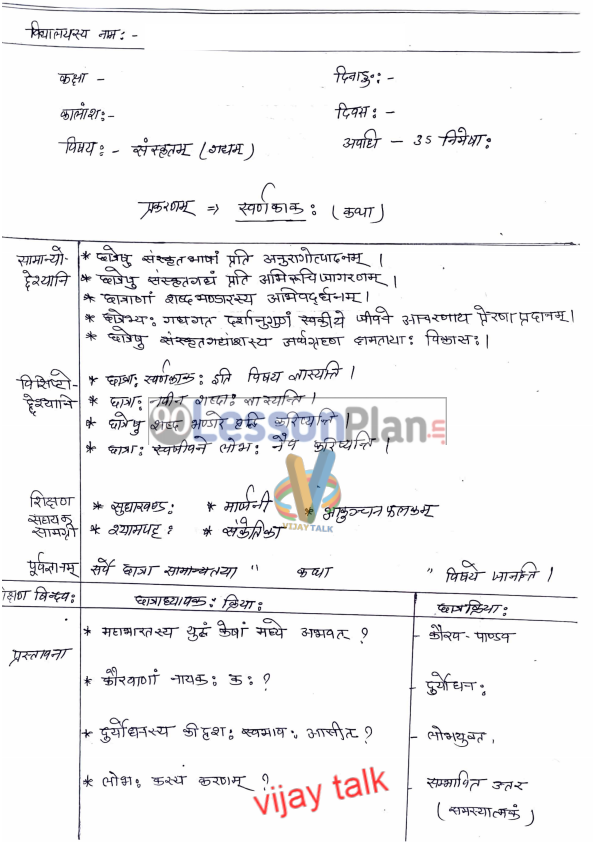 विद्यालयस्य नाम:-
कक्षा -
दिनाङ्क:-
कालांश:-
दिवस:-
विषय:- संस्कृतम् (गद्यम्)
अवधि - 35 निमेषा:
प्रकरणम् => स्वर्णकाक: (कथा)
सामान्यो-
द्देश्यानि
* छात्रेषु संस्कृतभाषां प्रति अनुरागोत्पादनम् ।
* छात्रेषु संस्कृतगद्यं प्रति अभिरूचि जागरणम् ।
* छात्राणां शब्दभण्डारस्य अभिवर्द्धनम् ।
* छात्रेभ्य: गद्यगत स्वकीये जीवने आचरणाय प्रेरणा प्रदानम् ।
* छात्रेषु संस्कृतगद्यांशस्य अर्थग्रहण क्षमताया: विकास: ।
विशिष्टो-
द्देश्यानि
* छात्रा: स्वर्णकाक: इति विषय ज्ञास्यन्ति ।
* छात्रा: नवीन शब्दा: ज्ञास्यन्ति ।
* छात्रेषु शब्द भण्डारे वृद्धि करिष्यन्ति ।
* छात्रा: स्वजीवने लोभ: नैव करिष्यन्ति ।
LessonPlan.in
शिक्षण
सहायक
सामग्री
* सुधाखण्ड:
* मार्जनी
* आकुञ्चनफलकम्
* श्यामपट्ट:
* संकेतिका
VIJAY TALK
पूर्वज्ञानम्
सर्वे छात्रा सामान्यतया " कथा " विषये जानन्ति ।
छात्राध्यापक: क्रिया:
छात्रक्रिया:
प्रस्तावना
* महाभारतस्य युद्धं केषां मध्ये अभवत् ?
- कौरव-पाण्डव
* कौरवाणां नायक: क: ?
- दुर्योधन:
* दुर्योधनस्य कीदृश: स्वभाव: आसीत् ?
- लोभयुक्त
* लोभ: कस्य करणम् ?
- सम्भावित उत्तर
(समस्यात्मकं)
vijay talk